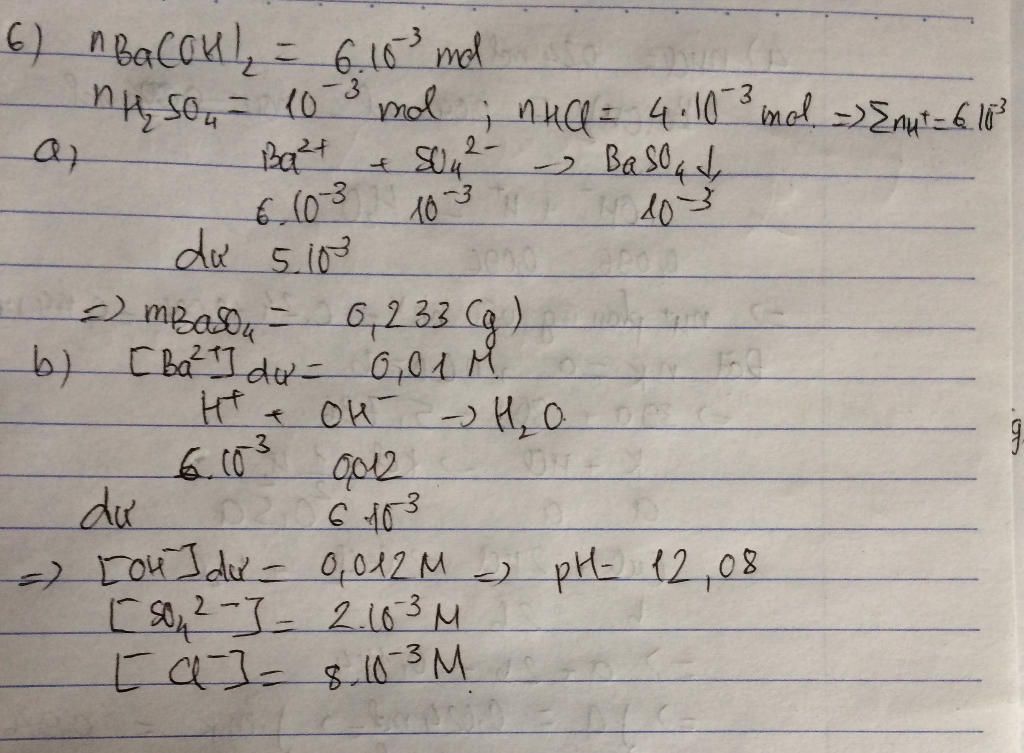 6) nBa(OH)₂ = 6.10⁻³ mol
nH₂SO₄ = 10⁻³ mol ; nHCl = 4.10⁻³ mol. => ΣnH⁺ = 6.10⁻³
a, Ba²⁺ + SO₄²⁻ -> BaSO₄↓
6.10⁻³ 10⁻³ 10⁻³
dư 5.10⁻³
=> mBaSO₄ = 0,233 (g)
b) [Ba²⁺] dư = 0,01 M
H⁺ + OH⁻ -> H₂O.
6.10⁻³ 0,012
dư 6.10⁻³
=> [OH⁻] dư = 0,012 M => pH = 12,08
[SO₄²⁻] = 2.10⁻³ M
[Cl⁻] = 8.10⁻³ M